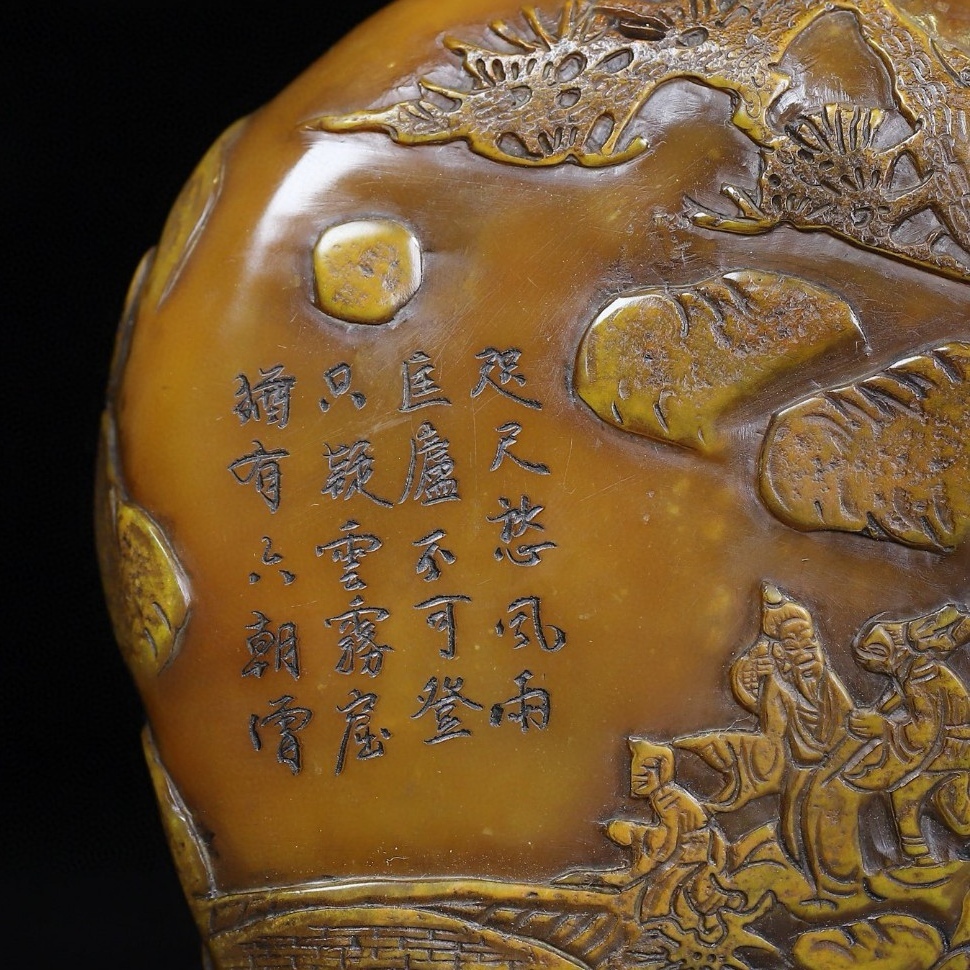 咫尺愁風雨
匡廬不可登
只疑雲霧窟
猶有六朝僧